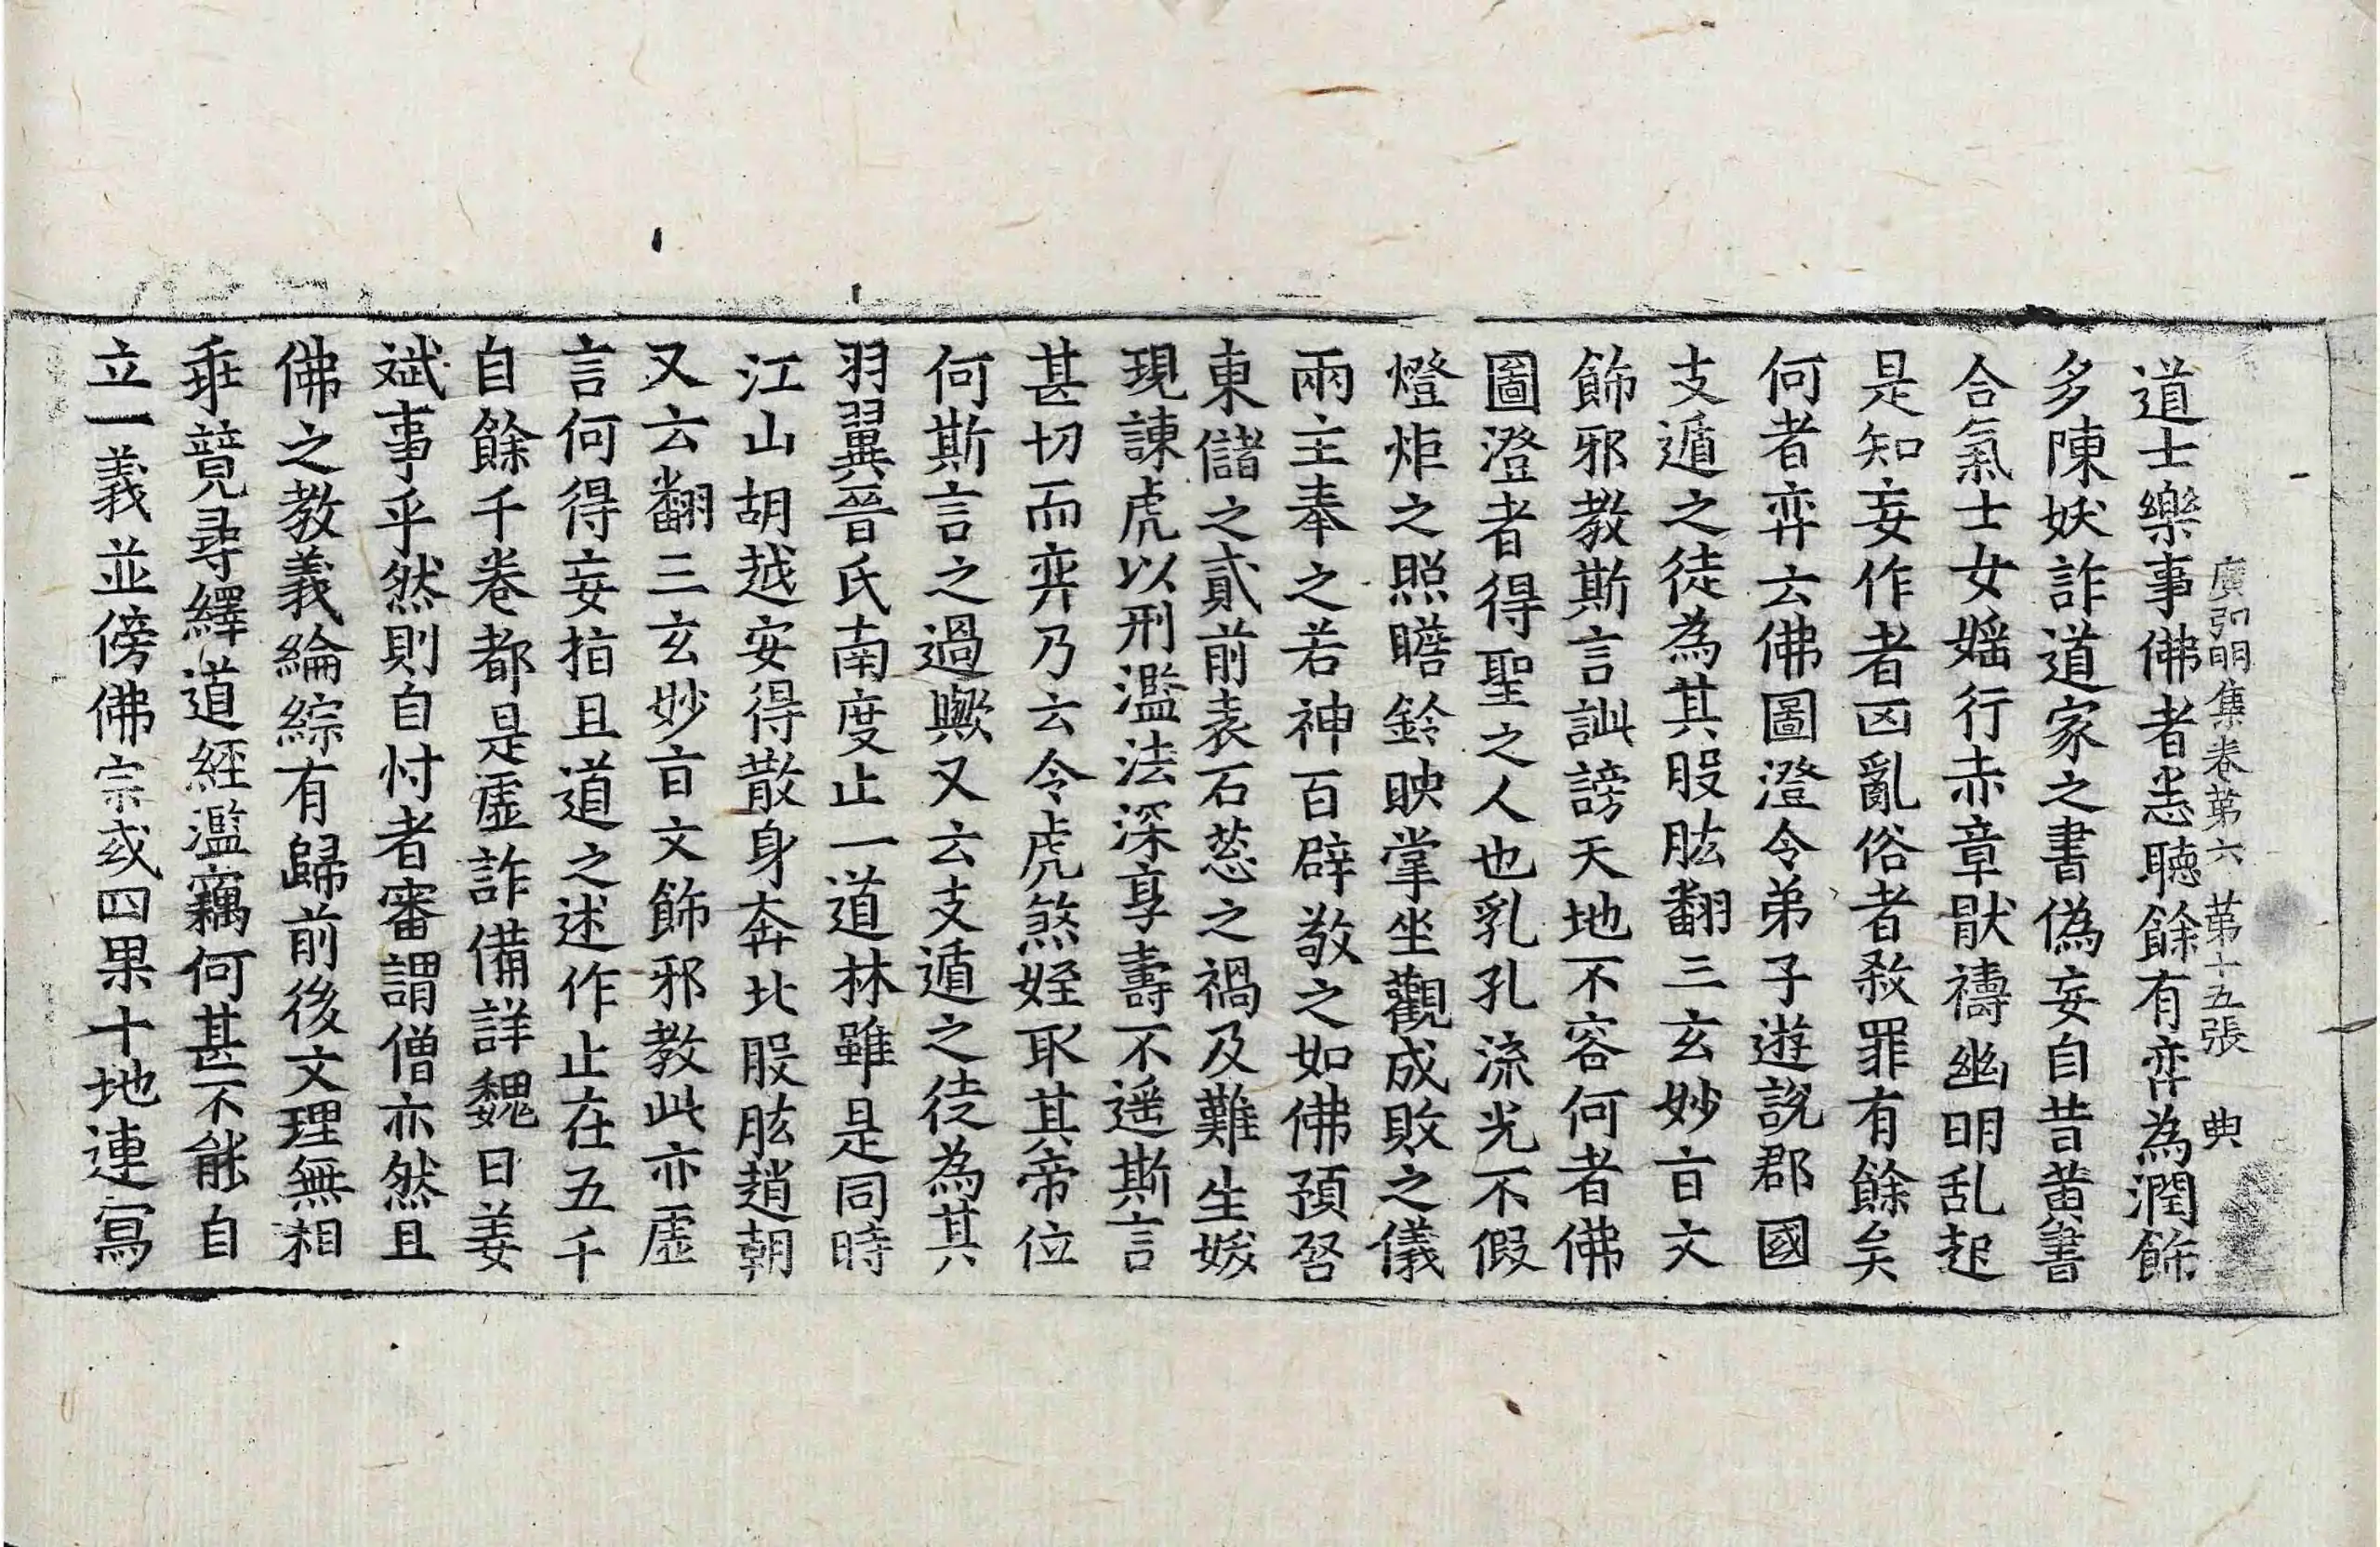 道士樂事佛者恙聽餘有弈為潤飾
廣弘明集卷第六 第十五張 典
多陳妖詐道家之書偽妄自昔黃書
合氣士女婬行赤章猒禱幽明乱起
是知妄作者凶亂俗者赦罪有餘矣
何者弈云佛圖澄令弟子遊說郡國
支遁之徒為其股肱翻三玄妙旨文
飾邪教斯言訕謗天地不容何者佛
圖澄者得聖之人也乳孔流光不假
燈炬之照瞻鈴映掌坐觀成敗之儀
兩主奉之若神百辟敬之如佛預啓
東儲之貳前表石葱之禍及難生娞
現諫虎以刑濫法深享壽不遥斯言
甚切而弈乃云令虎煞姪取其帝位
何斯言之過歟又云支遁之徒為其
羽翼晉氏南度止一道林雖是同時
江山胡越安得散身奔北股肱趙朝
又云翻三玄妙旨文飾邪教此亦虛
言何得妄指且道之述作止在五千
自餘千卷都是虛詐備詳魏日姜
斌事乎然則自忖者審謂僧亦然且
佛之教義綸綜有歸前後文理無相
乖競尋繹道經濫竊何甚不能自
立一義並傍佛宗或四果十地連寫